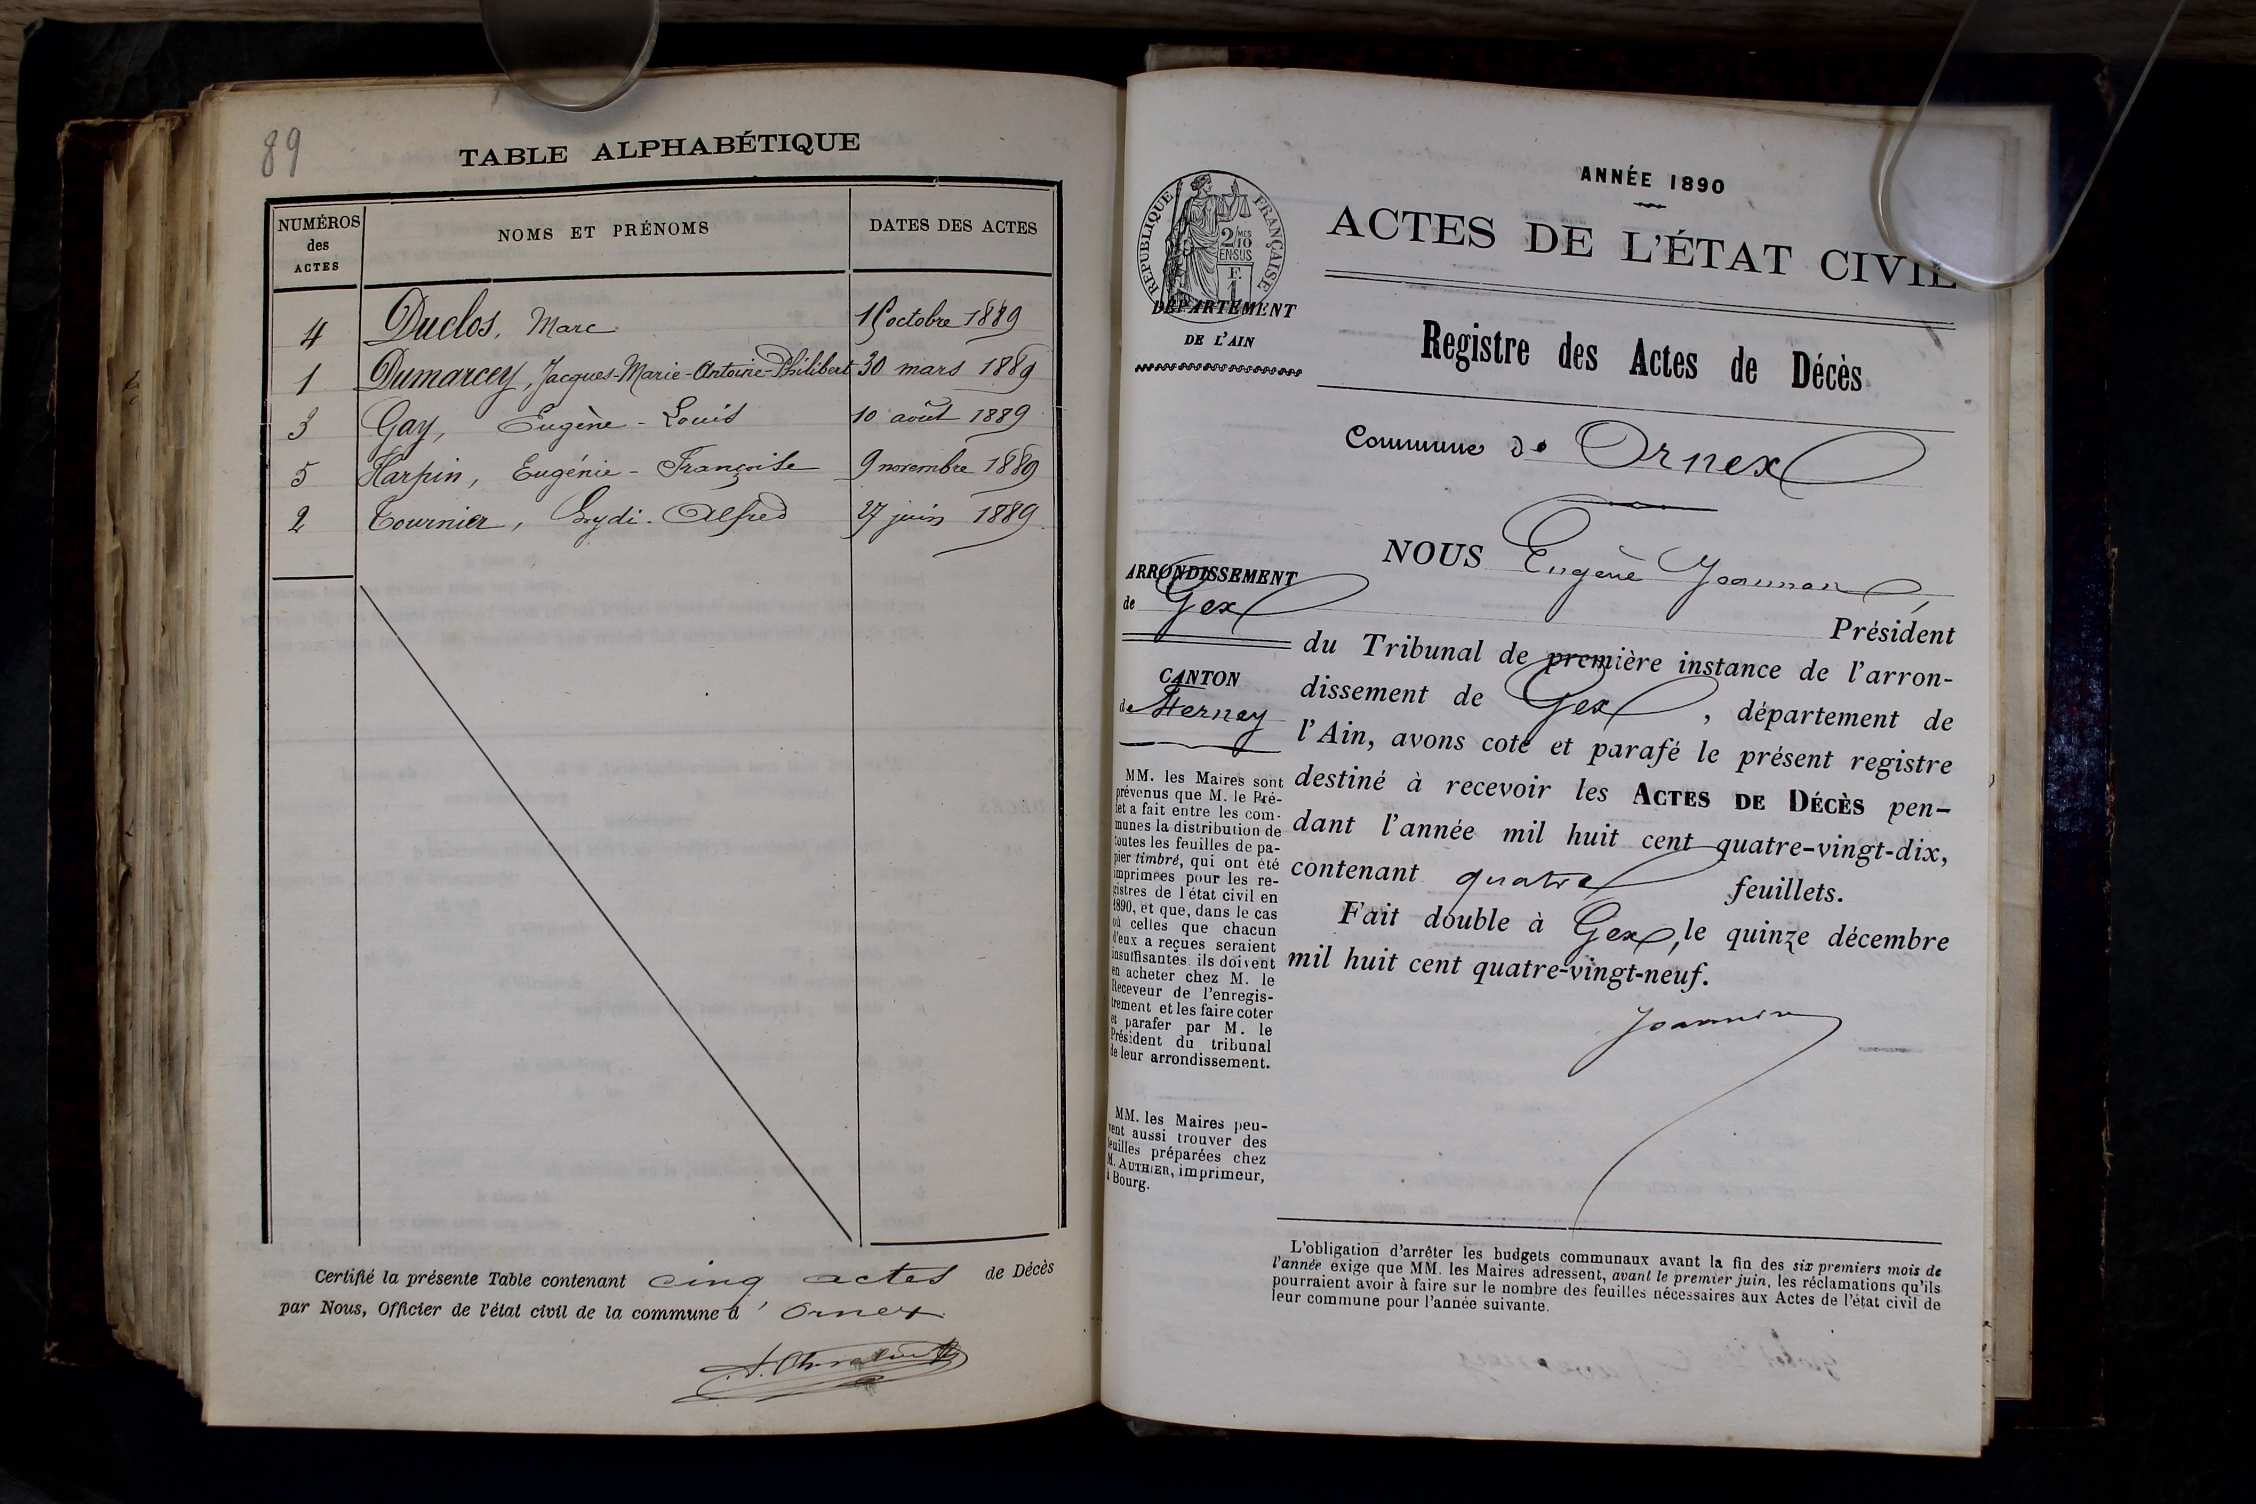 89
TABLE ALPHABÉTIQUE
NUMÉROS des ACTES
NOMS ET PRÉNOMS
DATES DES ACTES
4 Duclos, Marc octobre 1889
1 Dumarcey, Jacques-Marie-Antoine-Philibert 30 mars 1889
3 Gay, Eugène-Louis 10 août 1889
5 Harpin, Eugénie-Françoise 9 novembre 1889
2 Tournier, Alfred 27 juin 1889
Certifié la présente Table contenant cinq actes de Décès
par Nous, Officier de l'état civil de la commune d'Ornex
ANNÉE 1890
ACTES DE L'ÉTAT CIVIL
RÉPUBLIQUE FRANÇAISE
2/10 MES
EN SUS
F.
1
DÉPARTEMENT
DE L'AIN
Registre des Actes de Décès
Commune de Ornex
ARRONDISSEMENT
de Gex
CANTON
de Ferney
MM. les Maires sont
prévenus que M. le Pré-
fet a fait entre les com-
munes la distribution de
toutes les feuilles de pa-
pier timbré, qui ont été
imprimées pour les re-
gistres de l'état civil en
1890, et que, dans le cas
où celles que chacun
d'eux a reçues seraient
insuffisantes ils doivent
en acheter chez M. le
Receveur de l'enregis-
trement et les faire coter
et parafer par M. le
Président du tribunal
de leur arrondissement.
MM. les Maires peu-
vent aussi trouver des
feuilles préparées chez
M. AUTHIER, imprimeur,
à Bourg.
NOUS Eugène Joannon,
Président
du Tribunal de première instance de l'arron-
dissement de Gex, département de
l'Ain, avons coté et parafé le présent registre
destiné à recevoir les ACTES DE DÉCÈS pen-
dant l'année mil huit cent quatre-vingt-dix,
contenant quatre feuillets.
Fait double à Gex, le quinze décembre
mil huit cent quatre-vingt-neuf.
Joannon
L'obligation d'arrêter les budgets communaux avant la fin des six premiers mois de
l'année exige que MM. les Maires adressent, avant le premier juin, les réclamations qu'ils
pourraient avoir à faire sur le nombre des feuilles nécessaires aux Actes de l'état civil de
leur commune pour l'année suivante.